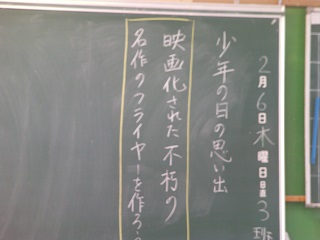 2月6日木曜日日直3班
少年の日の思い出
映画化された不朽の
名作のフライヤーを作ろう。